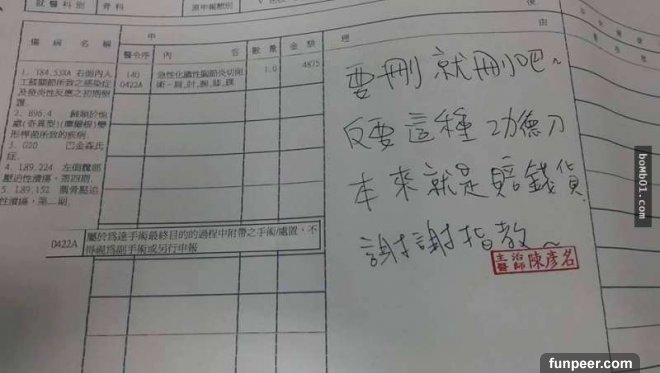 就醫科別 骨科 原申報類別
申 理 由
傷病名稱 醫令序 內容 數量 金額
1. T84.53XA 右側內人
工膝關節所致之感染症
及發炎性反應之初期照
護.
2. B96.4
(奇異型)(摩爾根)變
形桿菌所致的疾病.
3. G20 巴金森氏
症.
4. L89.224 左側髖部
壓迫性潰瘍,第四期.
5. L89.152 薦骨壓迫
性潰瘍,第二期.
140
0422A
急性化膿性關節炎切開
術-肩,肘,腕,膝,踝
1.0
4875
0422A
屬於為達手術最終目的的過程中附帶之手術/處置,不
得視為副手術或另行申報
要刪就刪吧~
反正這種功德刀
本來就是賠錢貨
謝謝指教~
主治醫師 陳彥名
bomb01.com
funpeer.com